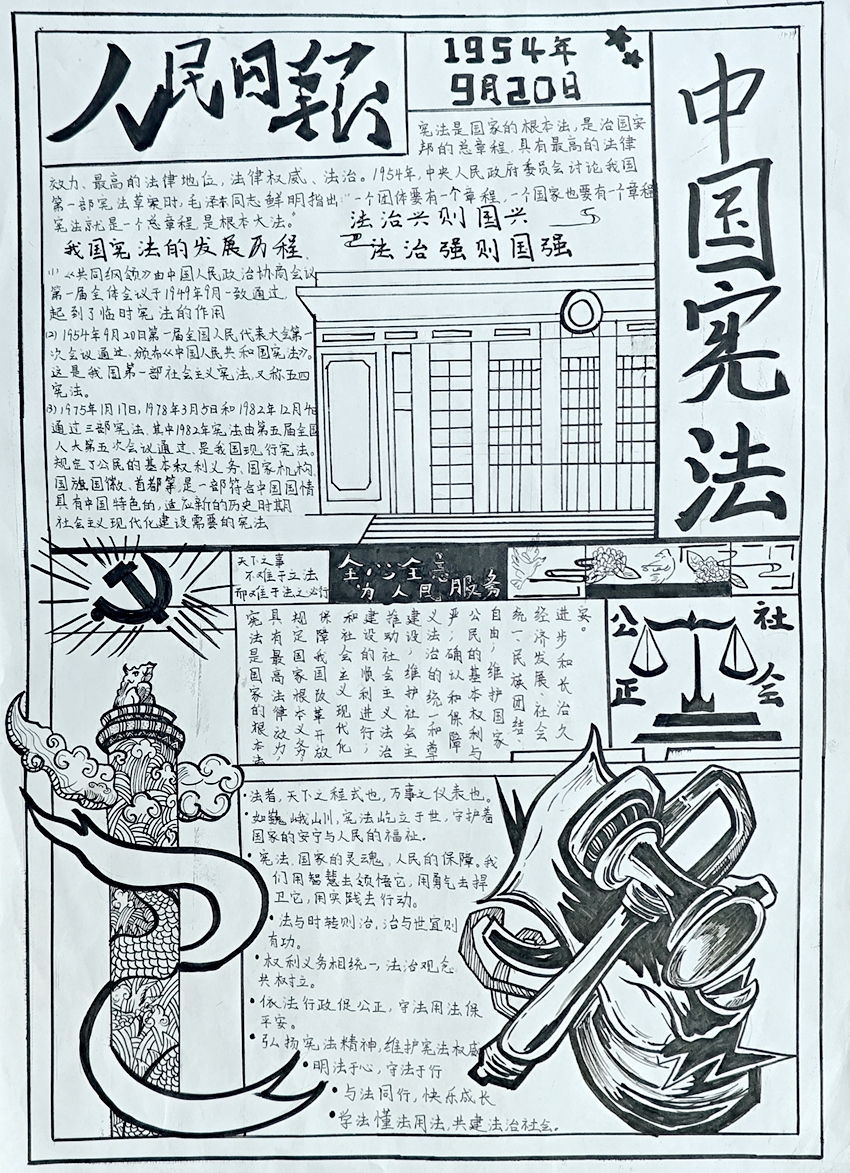 人民日报
1954年
9月20日
中国宪法
宪法是国家的根本法,是治国安
邦的总章程,具有最高的法律
效力、最高的法律地位,法律权威、法治。1954年,中央人民政府委员会讨论我国
第一部宪法草案时,毛泽东同志鲜明指出“一个团体要有一个章程,一个国家也要有一个章程
宪法就是一个总章程,是根本大法。”
法治兴则国兴
法治强则国强
我国宪法的发展历程
(1)《共同纲领》由中国人民政治协商会议
第一届全体会议于1949年9月一致通过,
起到了临时宪法的作用
(2)1954年9月20日第一届全国人民代表大会第一
次会议通过、颁布《中国人民共和国宪法》。
这是我国第一部社会主义宪法,又称五四
宪法。
(3)1975年1月17日,1978年3月5日和1982年12月4日
通过三部宪法、其中1982年宪法由第五届全国
人大第五次会议通过、是我国现行宪法。
规定了公民的基本权利义务、国家机构、
国旗国徽、首都等,是一部符合中国国情
具有中国特色的,适应新的历史时期
社会主义现代化建设需要的宪法
天下之事
不难于立法
而难于法之必行
全心全意
为人民服务
宪法是国家的根本法,
具有最高法律效力,
规定国家根本义务,
保障我国改革开放
和社会主义现代化
建设的顺利进行;
推动社会主义法治
建设;维护社会主
义法治的统一和尊
严;确认和保障
公民的基本权利与
自由;维护国家
统一、民族团结、
经济发展、社会
进步和长治久
安。
公正
社会
·法者,天下之程式也,万事之仪表也。
·如巍峨山川,宪法屹立于世,守护着
国家的安宁与人民的福祉。
·宪法,国家的灵魂,人民的保障。我
们用智慧去领悟它,用勇气去捍
卫它,用实践去行动。
·法与时转则治,治与世宜则
有功。
·权利义务相统一,法治观念
共树立。
·依法行政促公正,守法用法保
平安。
·弘扬宪法精神,维护宪法权威
·明法于心,守法于行
·与法同行,快乐成长
·学法懂法用法,共建法治社会。